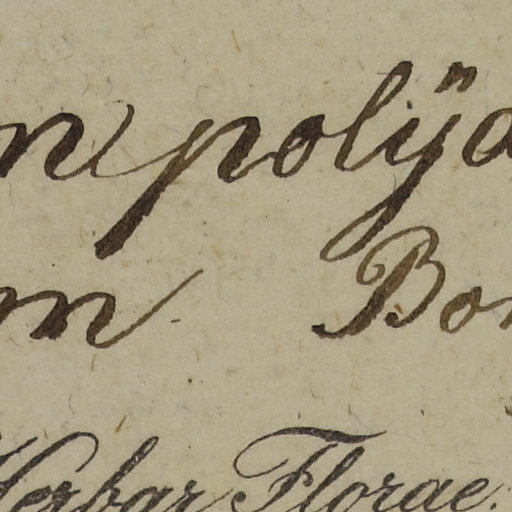 n polÿa
m Bon
Herbar Florae